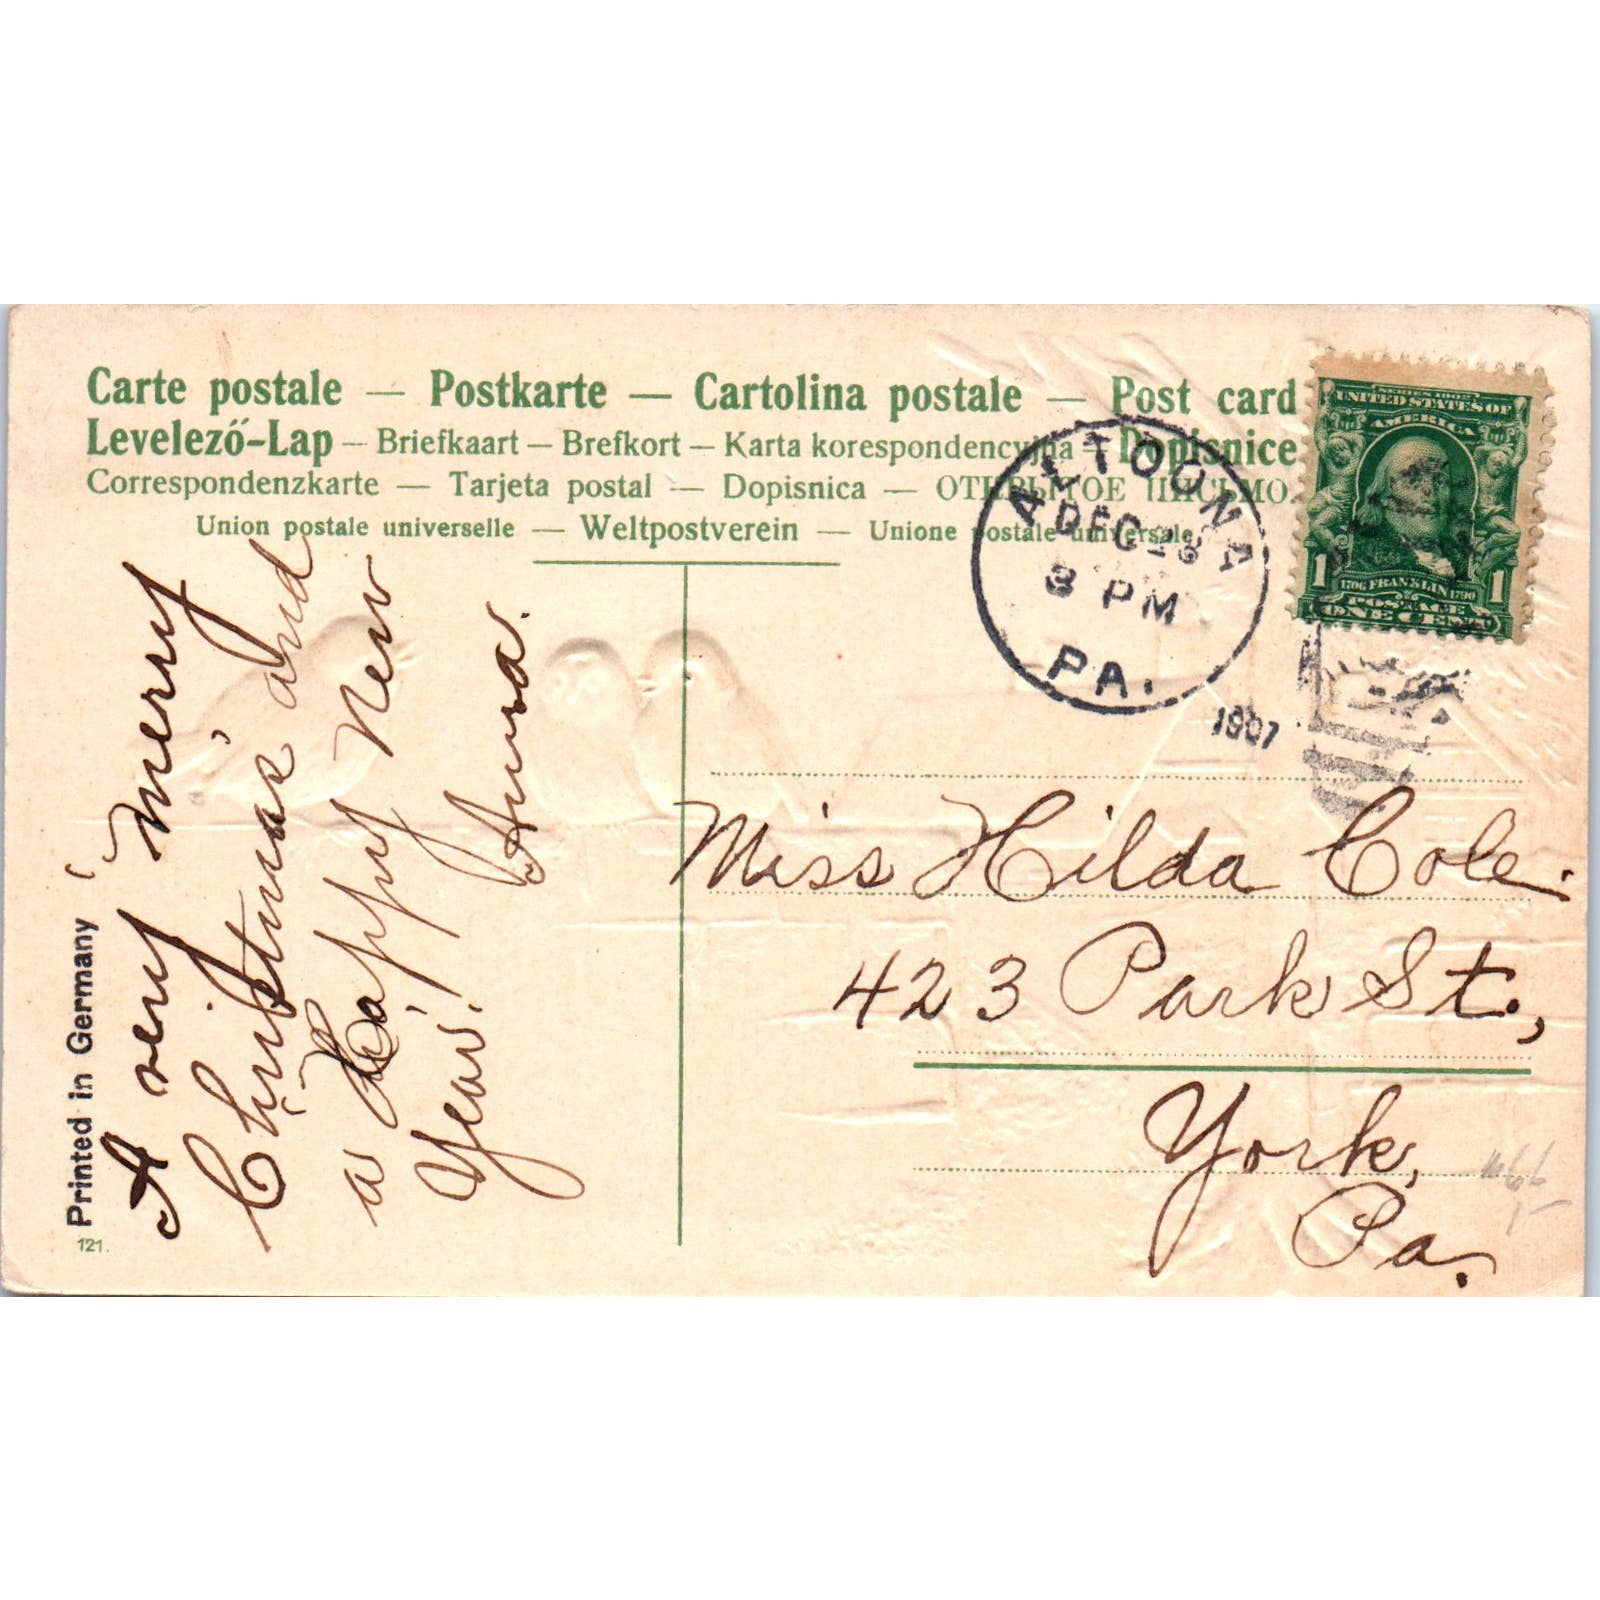 Carte postale — Postkarte — Cartolina postale — Post card
Levelező-Lap — Briefkaart — Brefkort — Karta korespondencyjna — Dopisnice
Correspondenzkarte — Tarjeta postal — Dopisnica — ОТКРЫТОЕ ПИСЬМО.
Union postale universelle — Weltpostverein — Unione postale universale
ALTOONA
DEC 23
3 PM
PA.
1907
UNITED STATES OF
AMERICA
1706 FRANKLIN 1790
1 POSTAGE 1
ONE CENT
Printed in Germany
121.
A very merry
Christmas and
a Happy New
Year.
Anna.
Miss Hilda Cole.
423 Park St.,
York,
Pa.